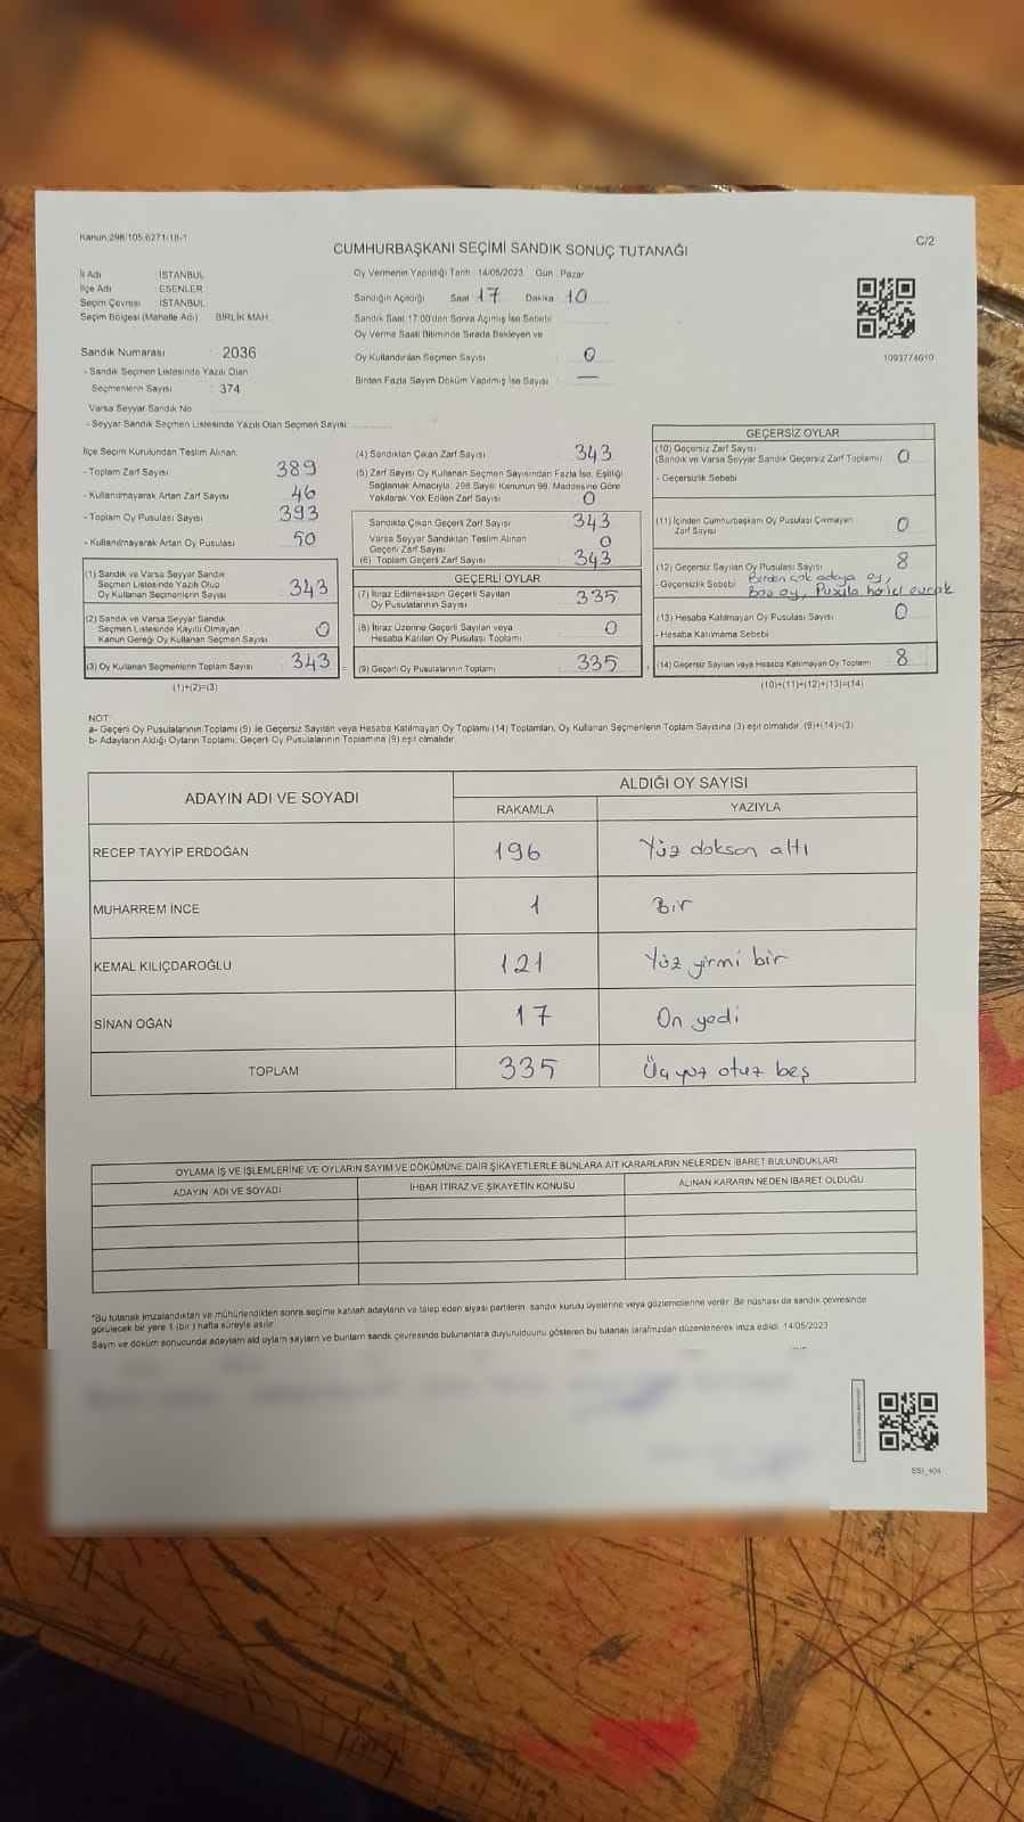 Kanun:298/105,6271/18-1
C/2
CUMHURBAŞKANI SEÇİMİ SANDIK SONUÇ TUTANAĞI
İl Adı : İSTANBUL
İlçe Adı : ESENLER
Seçim Çevresi : İSTANBUL
Seçim Bölgesi (Mahalle Adı) : BİRLİK MAH.
Oy Vermenin Yapıldığı Tarih : 14/05/2023 Gün : Pazar
Sandığın Açıldığı Saat 17 Dakika 10
Sandık Saat 17:00'den Sonra Açılmış İse Sebebi
Oy Verme Saati Bitiminde Sırada Bekleyen ve
Oy Kullandırılan Seçmen Sayısı 0
Birden Fazla Sayım Döküm Yapılmış İse Sayısı —
1093774610
Sandık Numarası : 2036
- Sandık Seçmen Listesinde Yazılı Olan
Seçmenlerin Sayısı : 374
Varsa Seyyar Sandık No
- Seyyar Sandık Seçmen Listesinde Yazılı Olan Seçmen Sayısı:
İlçe Seçim Kurulundan Teslim Alınan:
- Toplam Zarf Sayısı 389
- Kullanılmayarak Artan Zarf Sayısı 46
- Toplam Oy Pusulası Sayısı 393
- Kullanılmayarak Artan Oy Pusulası 50
(1) Sandık ve Varsa Seyyar Sandık
Seçmen Listesinde Yazılı Olup
Oy Kullanan Seçmenlerin Sayısı 343
(2) Sandık ve Varsa Seyyar Sandık
Seçmen Listesinde Kayıtlı Olmayan
Kanun Gereği Oy Kullanan Seçmen Sayısı 0
(3) Oy Kullanan Seçmenlerin Toplam Sayısı 343
(1)+(2)=(3)
(4) Sandıktan Çıkan Zarf Sayısı 343
(5) Zarf Sayısı Oy Kullanan Seçmen Sayısından Fazla İse, Eşitliği
Sağlamak Amacıyla, 298 Sayılı Kanunun 98. Maddesine Göre
Yakılarak Yok Edilen Zarf Sayısı 0
Sandıkta Çıkan Geçerli Zarf Sayısı 343
Varsa Seyyar Sandıktan Teslim Alınan
Geçerli Zarf Sayısı 0
(6) Toplam Geçerli Zarf Sayısı 343
GEÇERLİ OYLAR
(7) İtiraz Edilmeksizin Geçerli Sayılan
Oy Pusulalarının Sayısı 335
(8) İtiraz Üzerine Geçerli Sayılan veya
Hesaba Katılan Oy Pusulası Toplamı 0
(9) Geçerli Oy Pusulalarının Toplamı 335
GEÇERSİZ OYLAR
(10) Geçersiz Zarf Sayısı
(Sandık ve Varsa Seyyar Sandık Geçersiz Zarf Toplamı) 0
- Geçersizlik Sebebi
(11) İçinden Cumhurbaşkanı Oy Pusulası Çıkmayan
Zarf Sayısı 0
(12) Geçersiz Sayılan Oy Pusulası Sayısı 8
- Geçersizlik Sebebi Birden çok adaya oy,
Boş oy, Pusula harici evrak
(13) Hesaba Katılmayan Oy Pusulası Sayısı 0
- Hesaba Katılmama Sebebi
(14) Geçersiz Sayılan veya Hesaba Katılmayan Oy Toplamı 8
(10)+(11)+(12)+(13)=(14)
NOT
a- Geçerli Oy Pusulalarının Toplamı (9) ile Geçersiz Sayılan veya Hesaba Katılmayan Oy Toplamı (14) Toplamları, Oy Kullanan Seçmenlerin Toplam Sayısına (3) eşit olmalıdır. (9)+(14)=(3)
b- Adayların Aldığı Oyların Toplamı, Geçerli Oy Pusulalarının Toplamına (9) eşit olmalıdır.
ADAYIN ADI VE SOYADI
ALDIĞI OY SAYISI
RAKAMLA YAZIYLA
RECEP TAYYİP ERDOĞAN 196 Yüz doksan altı
MUHARREM İNCE 1 Bir
KEMAL KILIÇDAROĞLU 121 Yüz yirmi bir
SİNAN OĞAN 17 On yedi
TOPLAM 335 Üçyüz otuz beş
OYLAMA İŞ VE İŞLEMLERİNE VE OYLARIN SAYIM VE DÖKÜMÜNE DAİR ŞİKAYETLERLE BUNLARA AİT KARARLARIN NELERDEN İBARET BULUNDUKLARI
ADAYIN ADI VE SOYADI İHBAR İTİRAZ VE ŞİKAYETİN KONUSU ALINAN KARARIN NEDEN İBARET OLDUĞU
*Bu tutanak imzalandıktan ve mühürlendikten sonra seçime katılan adayların ve talep eden siyasi partilerin sandık kurulu üyelerine veya gözlemcilerine verilir. Bir nüshası da sandık çevresinde
görülecek bir yere 1 (bir) hafta süreyle asılır.
Sayım ve döküm sonucunda adayların aldığı oyların sayıların ve bunların sandık çevresinde bulunanlara duyurulduğunu gösteren bu tutanak tarafımızdan düzenlenerek imza edildi. 14/05/2023